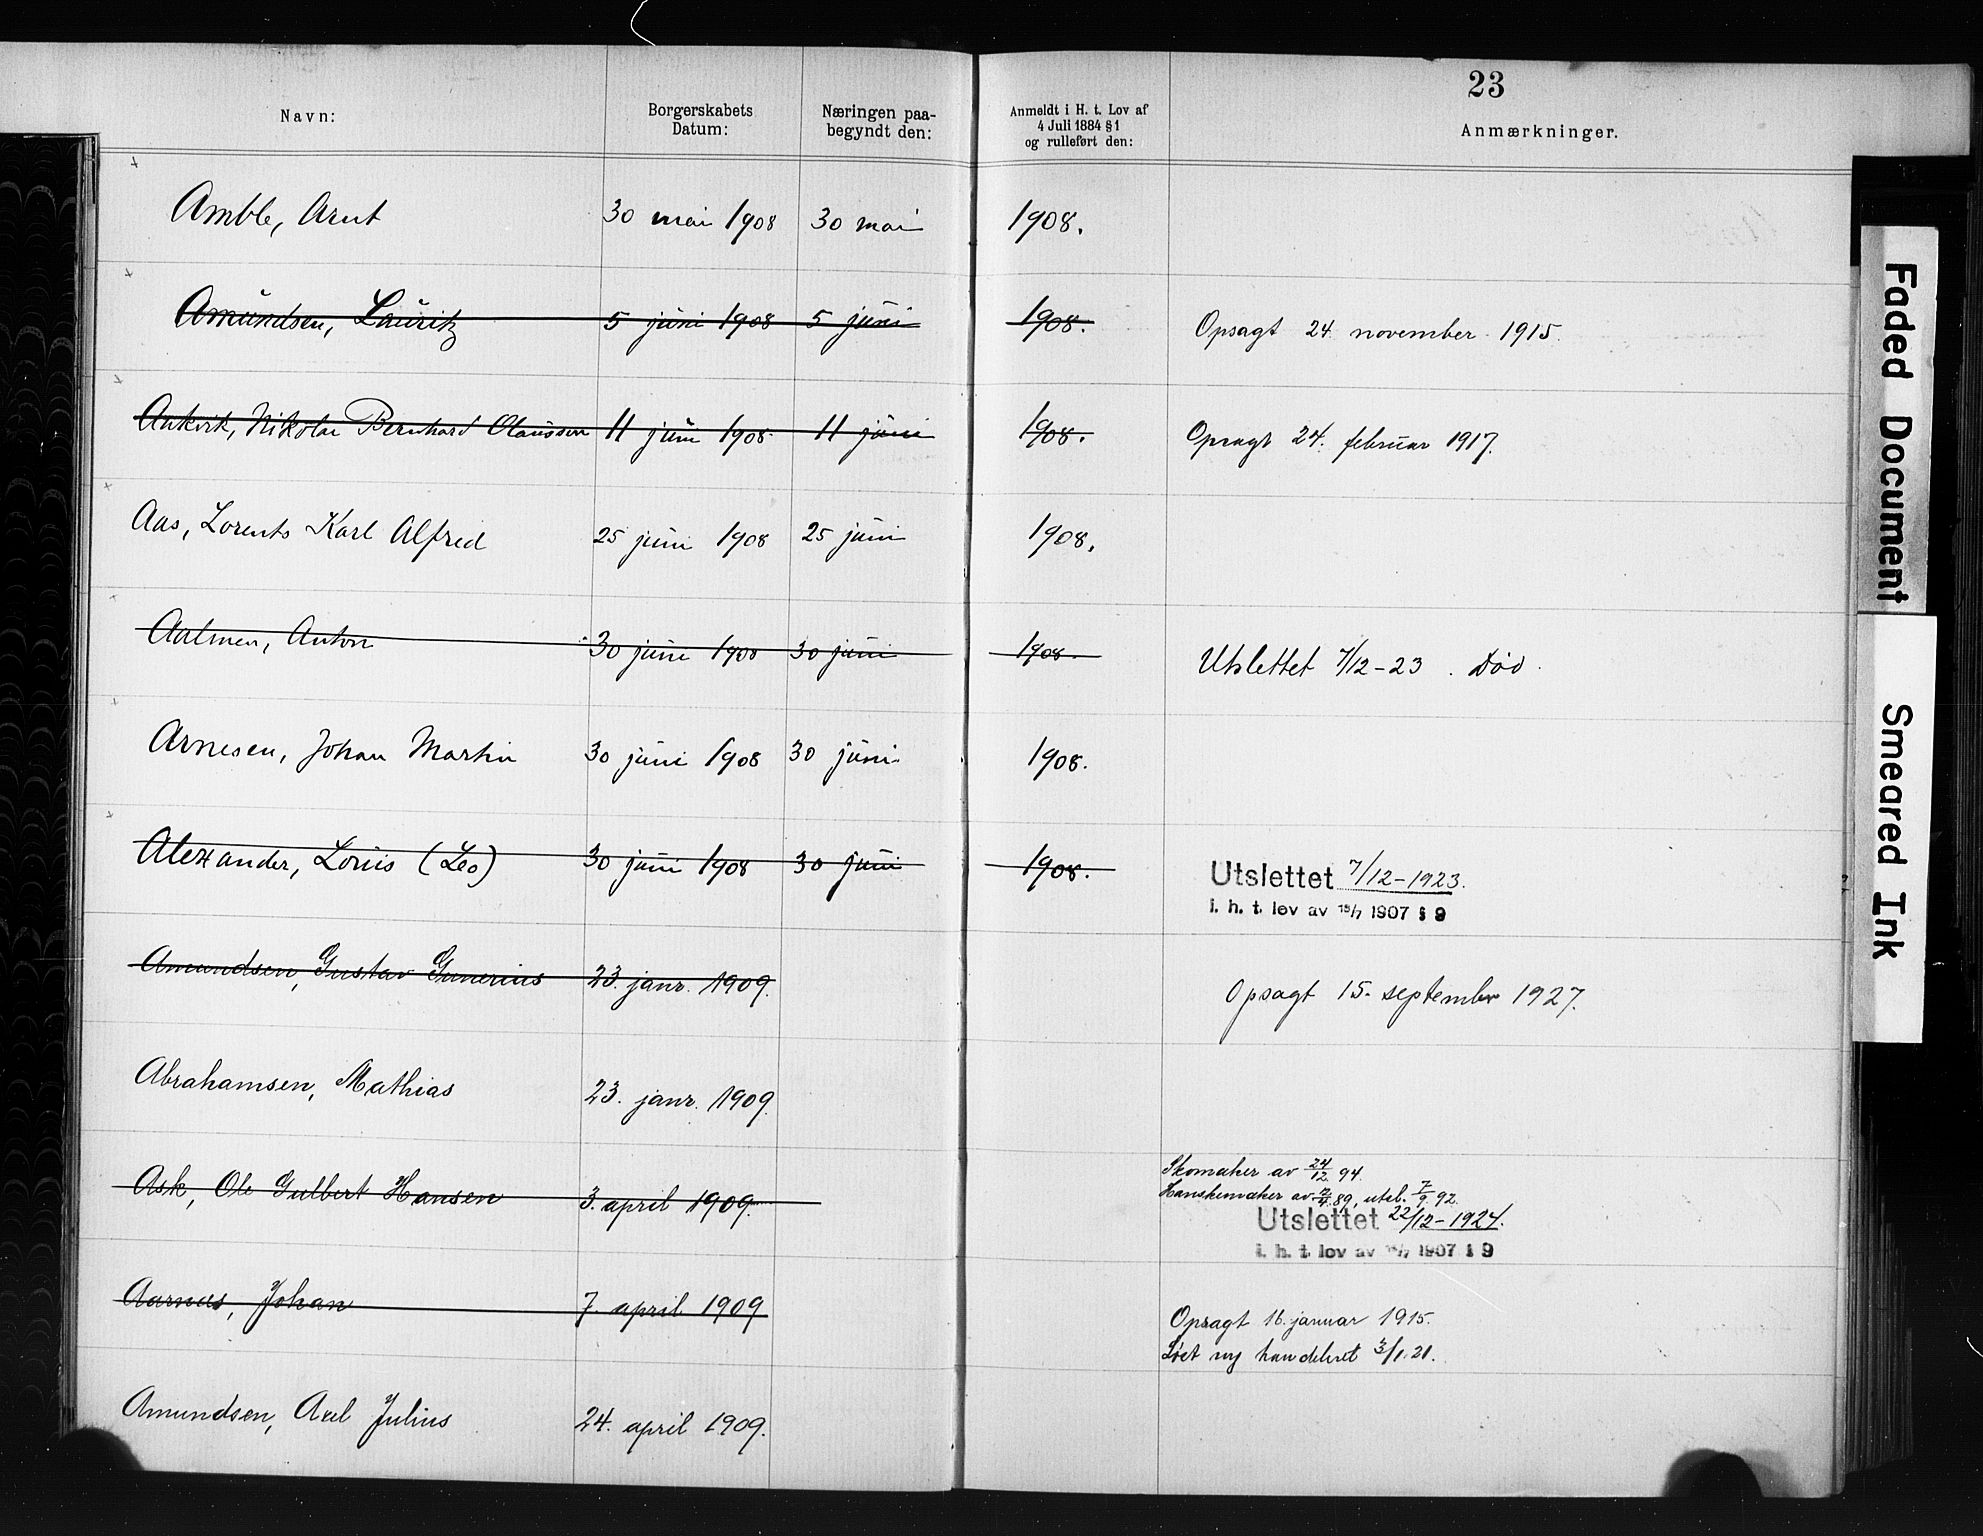 23
Navn: Borgerskabets Datum: Næringen paabegyndt den: Anmeldt i H. t. Lov af 4 Juli 1884 § 1 og rulleført den: Anmærkninger.
Amble, Arnt 30 mai 1908 30 mai 1908.
Amundsen, Lauritz 5 juni 1908 5 juni 1908. Opsagt 24. november 1915.
Aakvik, Nikolai Bernhard Olaussen 11 juni 1908 11 juni 1908. Opsagt 24. februar 1917.
Aas, Lorents Karl Alfred 25 juni 1908 25 juni 1908.
Aalmen, Anton 30 juni 1908 30 juni 1908. Utslettet 7/12-23. Død.
Arnesen, Johan Martin 30 juni 1908 30 juni 1908.
Alexander, Louis (Leo) 30 juni 1908 30 juni 1908. Utslettet 7/12-1923.
i. h. t. lov av 15/7 1907 § 9
Amundsen, Gustav Gunerius 23. janr. 1909. Opsagt 15. september 1927.
Abrahamsen, Mathias 23. janr. 1909.
Skomaker av 24/12 94.
Hanskemaker av 89, utsl. 7/9 92.
Ask, Ole Gulbert Hansen 3. april 1909. Utslettet 22/12-1924.
i. h. t. lov av 15/7 1907 § 9
Aarnæs, Johan 7. april 1909 Opsagt 16. januar 1915.
Løst ny handelsret 3/1 21.
Amundsen, Axel Julius 24. april 1909.
Faded Document
Smeared Ink